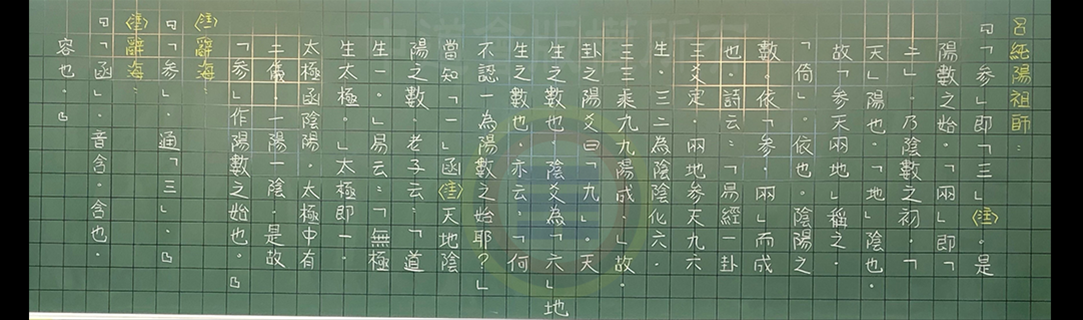 呂純陽祖師：
『「參」即「三」〈註〉。是
陽數之始。「兩」即「
二」。乃陰數之初。「
天」陽也。「地」陰也。
故「參天兩地」稱之。
「倚」。依也。陰陽之
數。依「參。兩」而成
也。詩云：「易經一卦
三爻定。兩地參天九六
生。三二為陰陰化六。
三三乘九九陽成。」故。
卦之陽爻曰「九」。天
生之數也。陰爻為「六」地
生之數也。亦云。「何
不認一為陽數之始耶？」
當知「一」函〈註〉天地陰
陽之數。老子云：「道
生一。」易云：「無極
生太極。」太極即一。
太極函陰陽。太極中有
二儀。一陽一陰。是故
「參」作陽數之始也。』
〈註〉辭海：
『「參」。通「三」。』
〈註〉辭海：
『「函」。音含。含也。
容也。』